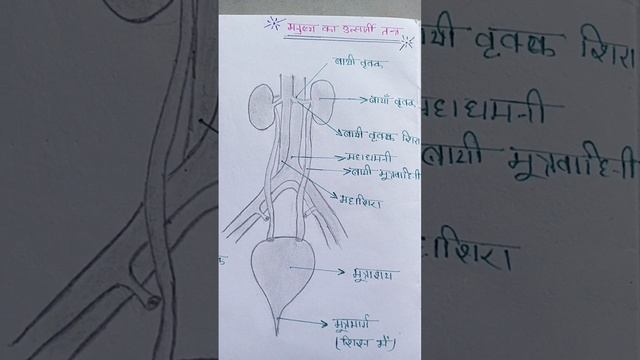 मनुष्य का उत्सर्जी तन्त्र
बायी वृतक
बायाँ वृतक
बायी वृक्क शिरा
महाधमनी
बायी मूत्रवाहिनी
महाशिरा
मूत्राशय
मूत्रमार्ग
(शिश्न में)
यी वृक्क शिरा
महाधमनी
बायी मूत्रवाहिनी
हाशिरा